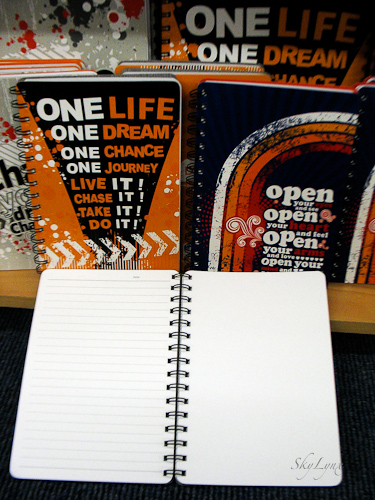 ONE LIFE
ONE DREAM
CHANCE
ONE LIFE
ONE DREAM
ONE CHANCE
ONE JOURNEY
LIVE IT!
CHASE IT!
TAKE IT!
DO IT!
open
your
and see
open
your heart
and feel
open
your arms
and love
open your
SkyLynx